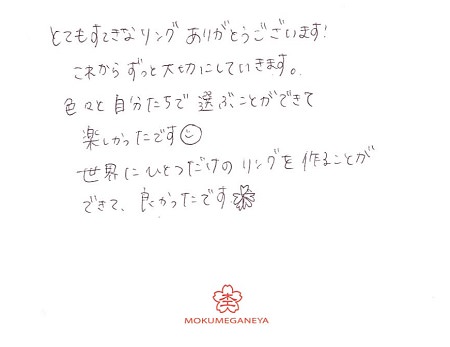 とてもすてきなリング ありがとうございます!
これからずっと大切にしていきます。
色々と自分たちで選ぶことができて
楽しかったです☺
世界にひとつだけのリングを作ることが
できて、良かったです
MOKUMEGANEYA